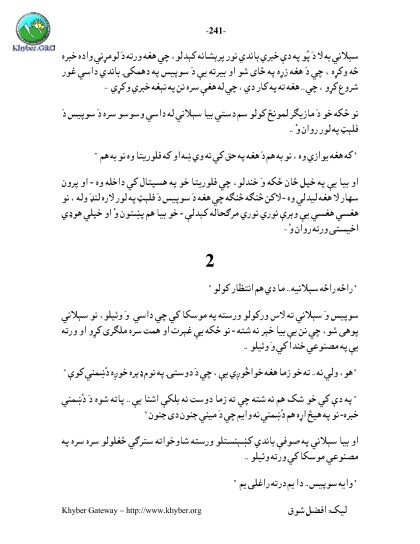 -241-
Khyber.ORG
سېلاني به لا د پو په دې خبرې باندې نور پرېشانه کېدلو ، چې هغه ورته د لومړني واده خبره
څه وکړه ، چې د هغه زړه په ځای شو او بيرته يې د سوپيس په دهمکۍ باندې داسې غور
شروع کړو ، چې.. هغه ته په کار دي ، چې له هغې سره نن په نېغه خبرې وکړي -
نو ځکه خو د مازيګر لمونځ کولو سم دستي بيا سېلاني له داسې وسوسو سره د سوپيس د
فلېټ په لور روان وْ ..
"که هغه يوازې وه ، نو به هم د هغه په حق کې نه وي ښه او که فلوريتا وه نو به هم "
او بيا يې په خپل ځان ځکه وَ خندلو ، چې فلوريتا خو په هسپتال کې داخله وه - او پرون
سهار لا هغه لېدلې وه - لاکن څنګه څنګه چې هغه د سوپيس د فلېټ په لور لاره لنډوله ، نو
هغسې هغسې يې وېرې نورې نورې مرګحاله کېدلې - خو بيا هم پښتون وْ او خپلې هوډې
اخيستی ورته روان وْ -
2
"راځه راځه سېلانيه.. ما دې هم انتظار کولو "
سوپيس وَ سېلاني ته لاس ورکولو ورسته په موسکا کې چې داسې وَ وئيلو ، نو سېلاني
پوهی شو ، چې نن يې بيا خير نه شته - نو ځکه يې غېرت او همت سره ملګری کړو او ورته
يې په مصنوعي خندا کې وَ وئيلو ..
"هو ، ولې نه.. ته خو زما هغه خواخوږي يې ، چې د دوستۍ په نوم ډېره خوږه دُښمني کوي "
" په دې کې خو شک هم نه شته چې ته زما دوست نه بلکې اشنا يې .. پاته شوه د دُښمنۍ
خبره - نو په هيڅ اړه هم دُښمني نه وايم چې د مينې جنون دی جنون "
او بيا سېلاني په صوفې باندې کښېنستلو ورسته شاوخواته سترګې ځغلولو سره سره په
مصنوعي موسکا کې ورته وئيلو ..
"وايه سوپيس.. دا يم درته راغلی يم "
ليک: افضل شوق
Khyber Gateway – http://www.khyber.org